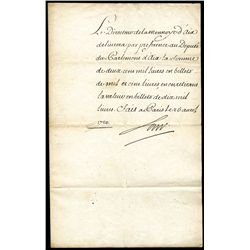 Le Directeur de la monnoye d'Aix
delivrera par preference au Deputé
du Parlement d'Aix la somme
de deux cens mil livres en billets
de mil et cent livres en en retirant
la valeur en billets de dix mil
livres. Fait a Paris le 26 avril
1720.
Law